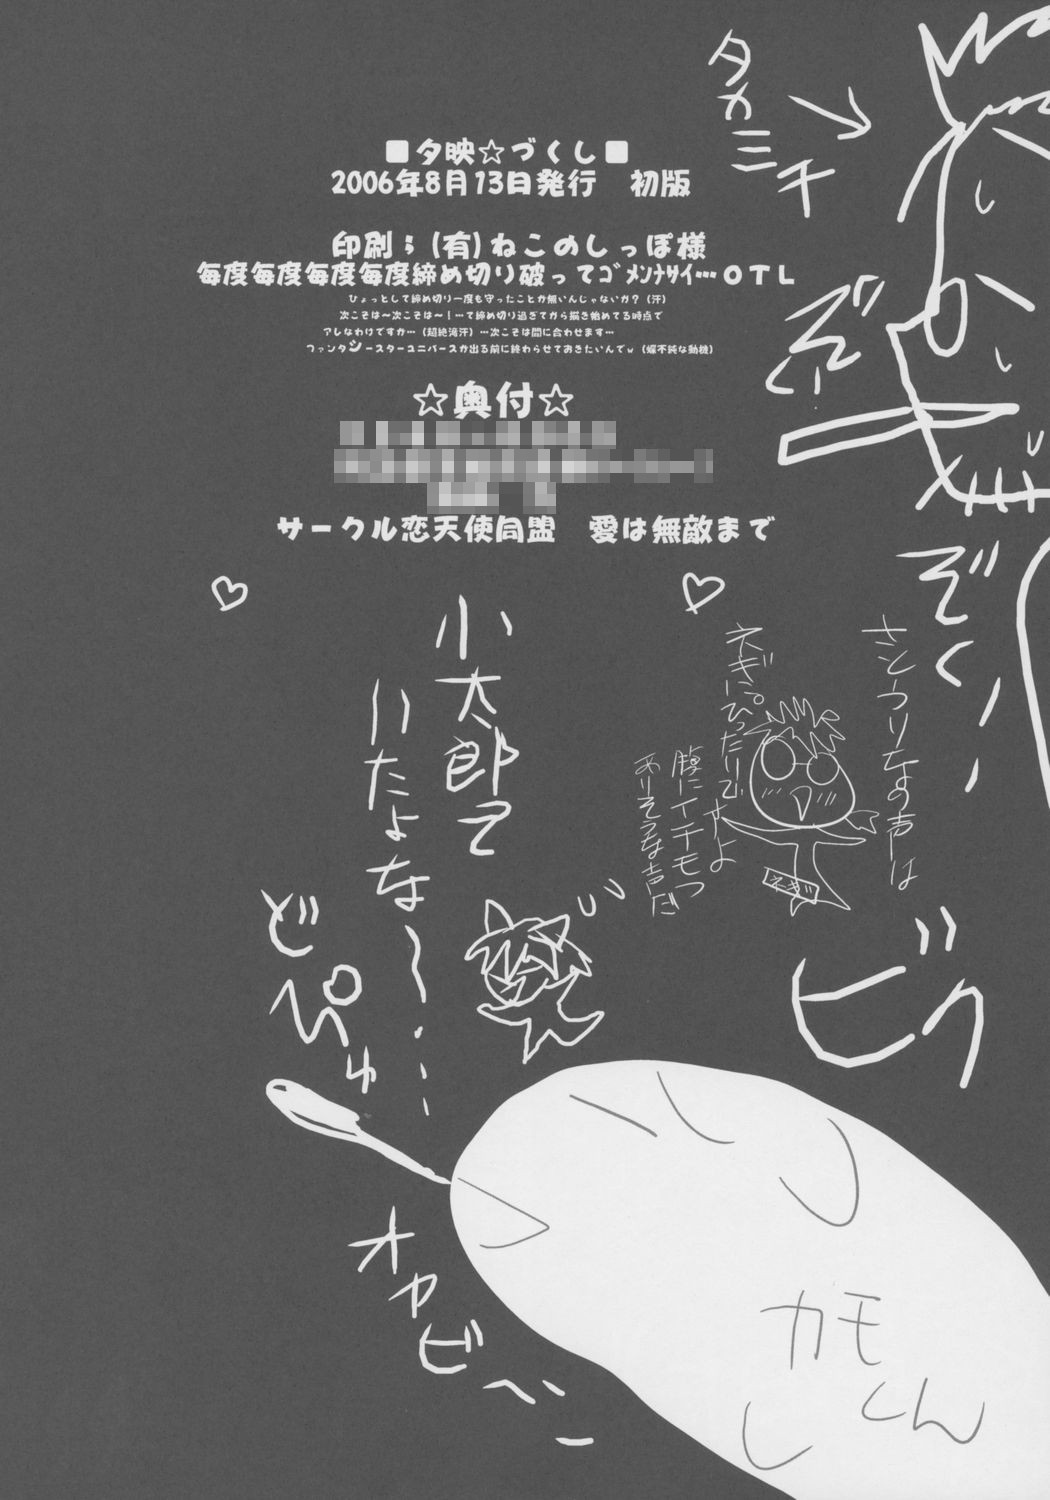 ■夕映☆づくし■
2006年8月13日発行　初版
印刷；(有)ねこのしっぽ様
毎度毎度毎度毎度締め切り破ってｺﾞﾒﾝﾅｻｲ…OTL
ひょっとして締め切り一度も守ったことが無いんじゃないか？（汗）
次こそは～次こそは～！…て締め切り過ぎてから描き始めてる時点で
アレなわけですが…（超絶滝汗）…次こそは間に合わせます…
ファンタシースターユニバースが出る前に終わらせておきたいんでｗ（爆不純な動機）
☆奥付☆
サークル恋天使同盟　愛は無敵まで
タカミチ
ぞくぞく
さとうりなの声は
ネギにぴったりですよ
腹にイチモツ
ありそうな声だ
ネギ
小太郎て
いたよな～……
ビクッ
どぴゅ
オヤビ～ン
カモくん